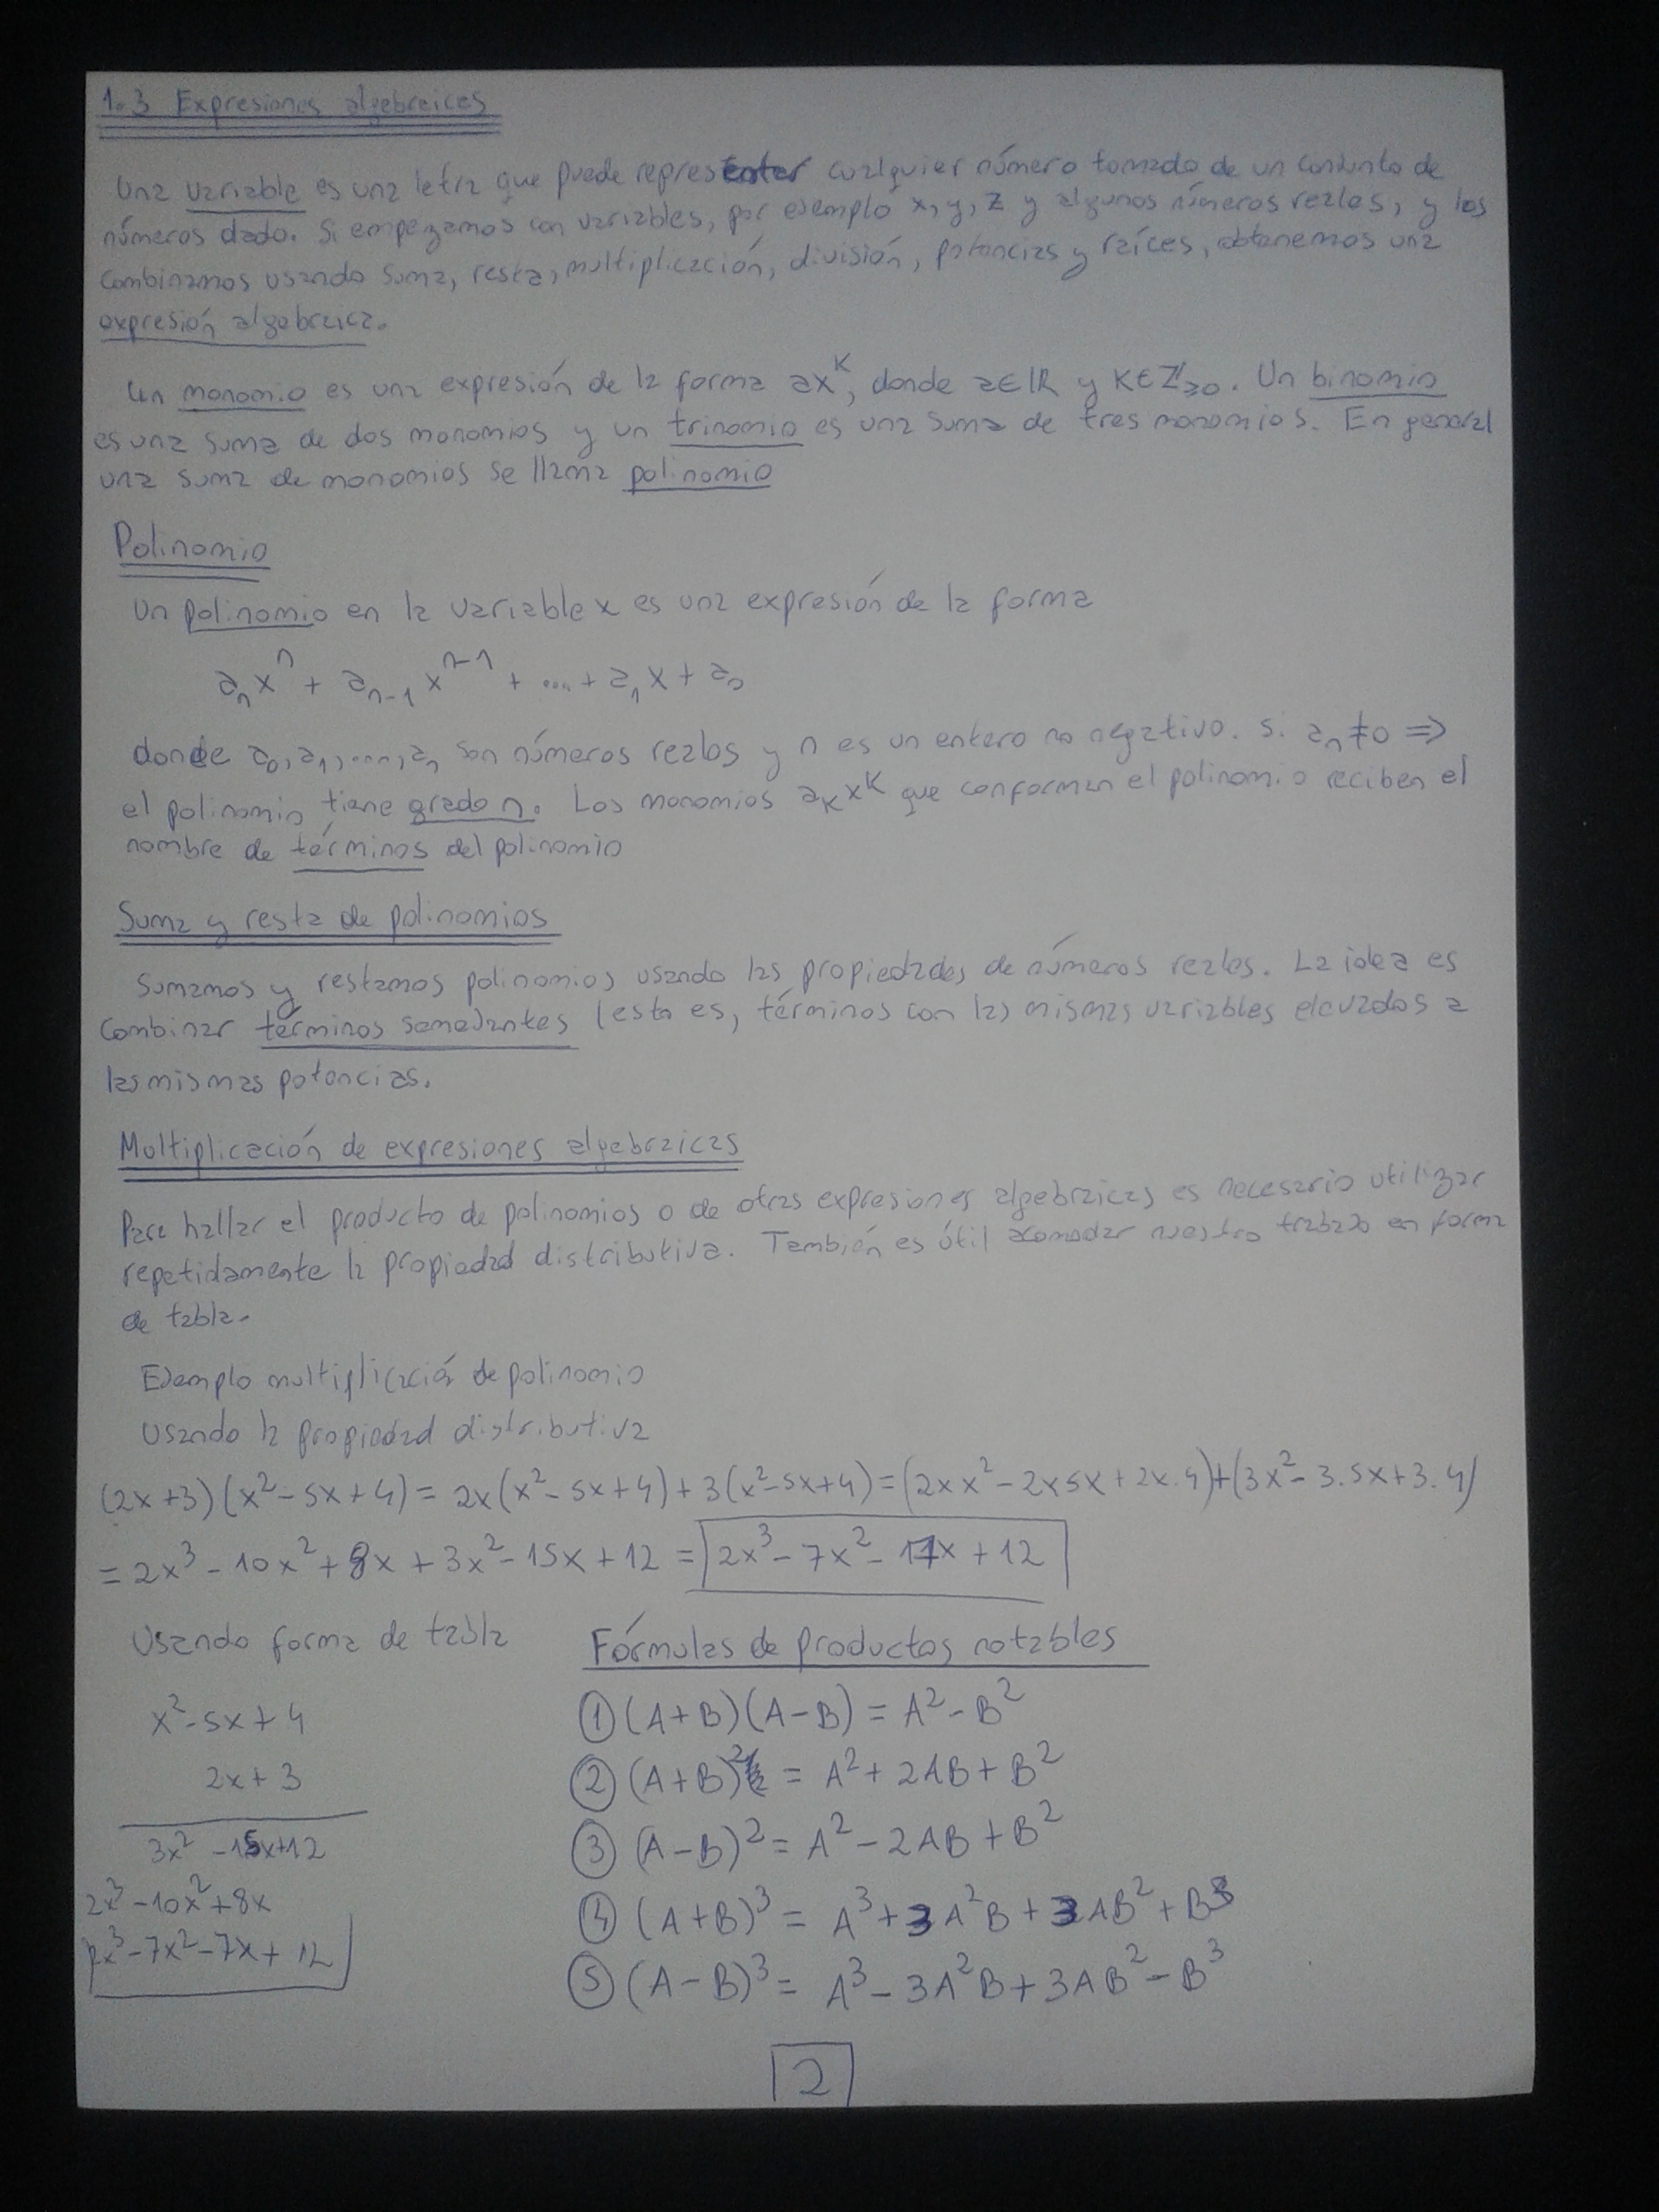 1.3 Expresiones algebraicas
Una variable es una letra que puede representar cualquier número tomado de un conjunto de
números dado. Si empezamos con variables, por ejemplo x, y, z y algunos números reales, y los
combinamos usando suma, resta, multiplicación, división, potencias y raíces, obtenemos una
expresión algebraica.
Un monomio es una expresión de la forma ax^k, donde a∈ℝ y k∈ℤ≥0. Un binomio
es una suma de dos monomios y un trinomio es una suma de tres monomios. En general
una suma de monomios se llama polinomio
Polinomio
Un polinomio en la variable x es una expresión de la forma
aₙxⁿ + aₙ₋₁xⁿ⁻¹ + ... + a₁x + a₀
donde a₀, a₁, ..., aₙ son números reales y n es un entero no negativo. Si aₙ ≠ 0 ⇒
el polinomio tiene grado n. Los monomios aₖxᵏ que conforman el polinomio reciben el
nombre de términos del polinomio
Suma y resta de polinomios
Sumamos y restamos polinomios usando las propiedades de números reales. La idea es
combinar términos semejantes (esto es, términos con las mismas variables elevados a
las mismas potencias.
Multiplicación de expresiones algebraicas
Para hallar el producto de polinomios o de otras expresiones algebraicas es necesario utilizar
repetidamente la propiedad distributiva. También es útil acomodar nuestro trabajo en forma
de tabla.
Ejemplo multiplicación de polinomio
Usando la propiedad distributiva
(2x+3)(x²-5x+4) = 2x(x²-5x+4)+3(x²-5x+4) = (2xx²-2x5x+2x.4)+(3x²-3.5x+3.4)
= 2x³-10x²+8x+3x²-15x+12 = 2x³-7x²-7x+12
Usando forma de tabla
x²-5x+4
2x+3
3x²-15x+12
2x³-10x²+8x
2x³-7x²-7x+12
Fórmulas de productos notables
① (A+B)(A-B) = A²-B²
② (A+B)² = A²+2AB+B²
③ (A-B)² = A²-2AB+B²
④ (A+B)³ = A³+3A²B+3AB²+B³
⑤ (A-B)³ = A³-3A²B+3AB²-B³
2